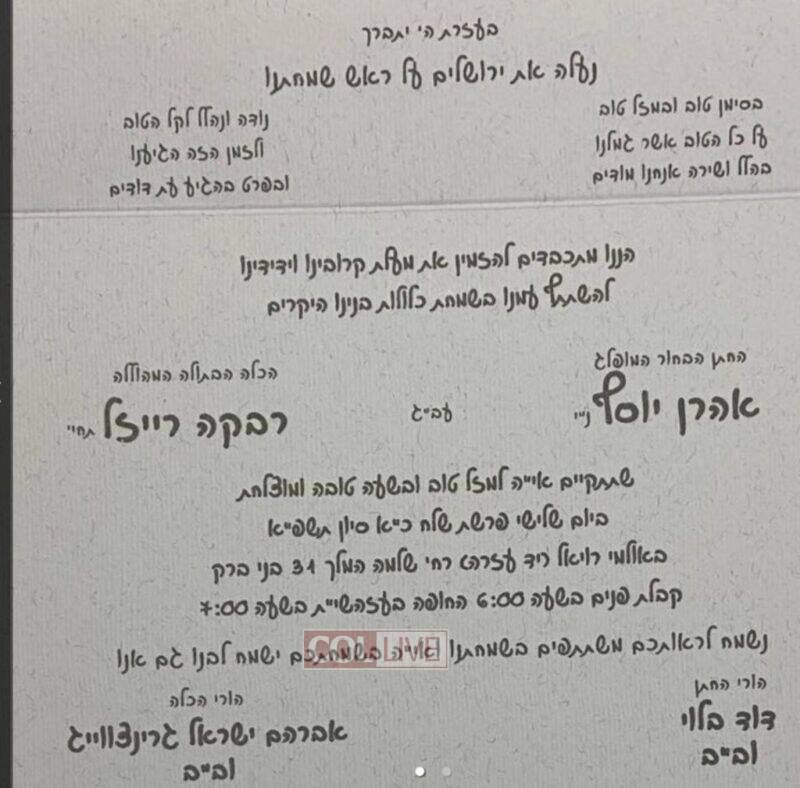 בעזרת ה' יתברך
נעלה את ירושלים על ראש שמחתנו
בסימן טוב ובמזל טוב
על כל הטוב אשר גמלנו
בהלל ושירה אנחנו מודים
נודה ונהלל לקל הטוב
ולזמן הזה הגיענו
ובפרט בהגיע עת דודים
הננו מתכבדים להזמין את מעלת קרובינו וידידינו
להשתתף עמנו בשמחת כלולות בנינו היקרים
החתן הבחור המופלג
אהרן יוסף ני"ו
עב"ג
הכלה הבתולה המהוללה
רבקה רייזל תחי'
שתתקיים אי"ה למזל טוב ובשעה טובה ומוצלחת
ביום שלישי פרשת שלח כ"א סיון תשפ"א
באולמי רויאל (יד עזרה) רח' שלמה המלך 31 בני ברק
קבלת פנים בשעה 6:00 החופה בעזהשי"ת בשעה 7:00
נשמח לראותכם משתתפים בשמחתנו ואי"ה בשמחתכם ישמח לבנו גם אנו
COL LIVE
הורי החתן
דוד בלוי
וב"ב
הורי הכלה
אברהם ישראל גרינצווייג
וב"ב